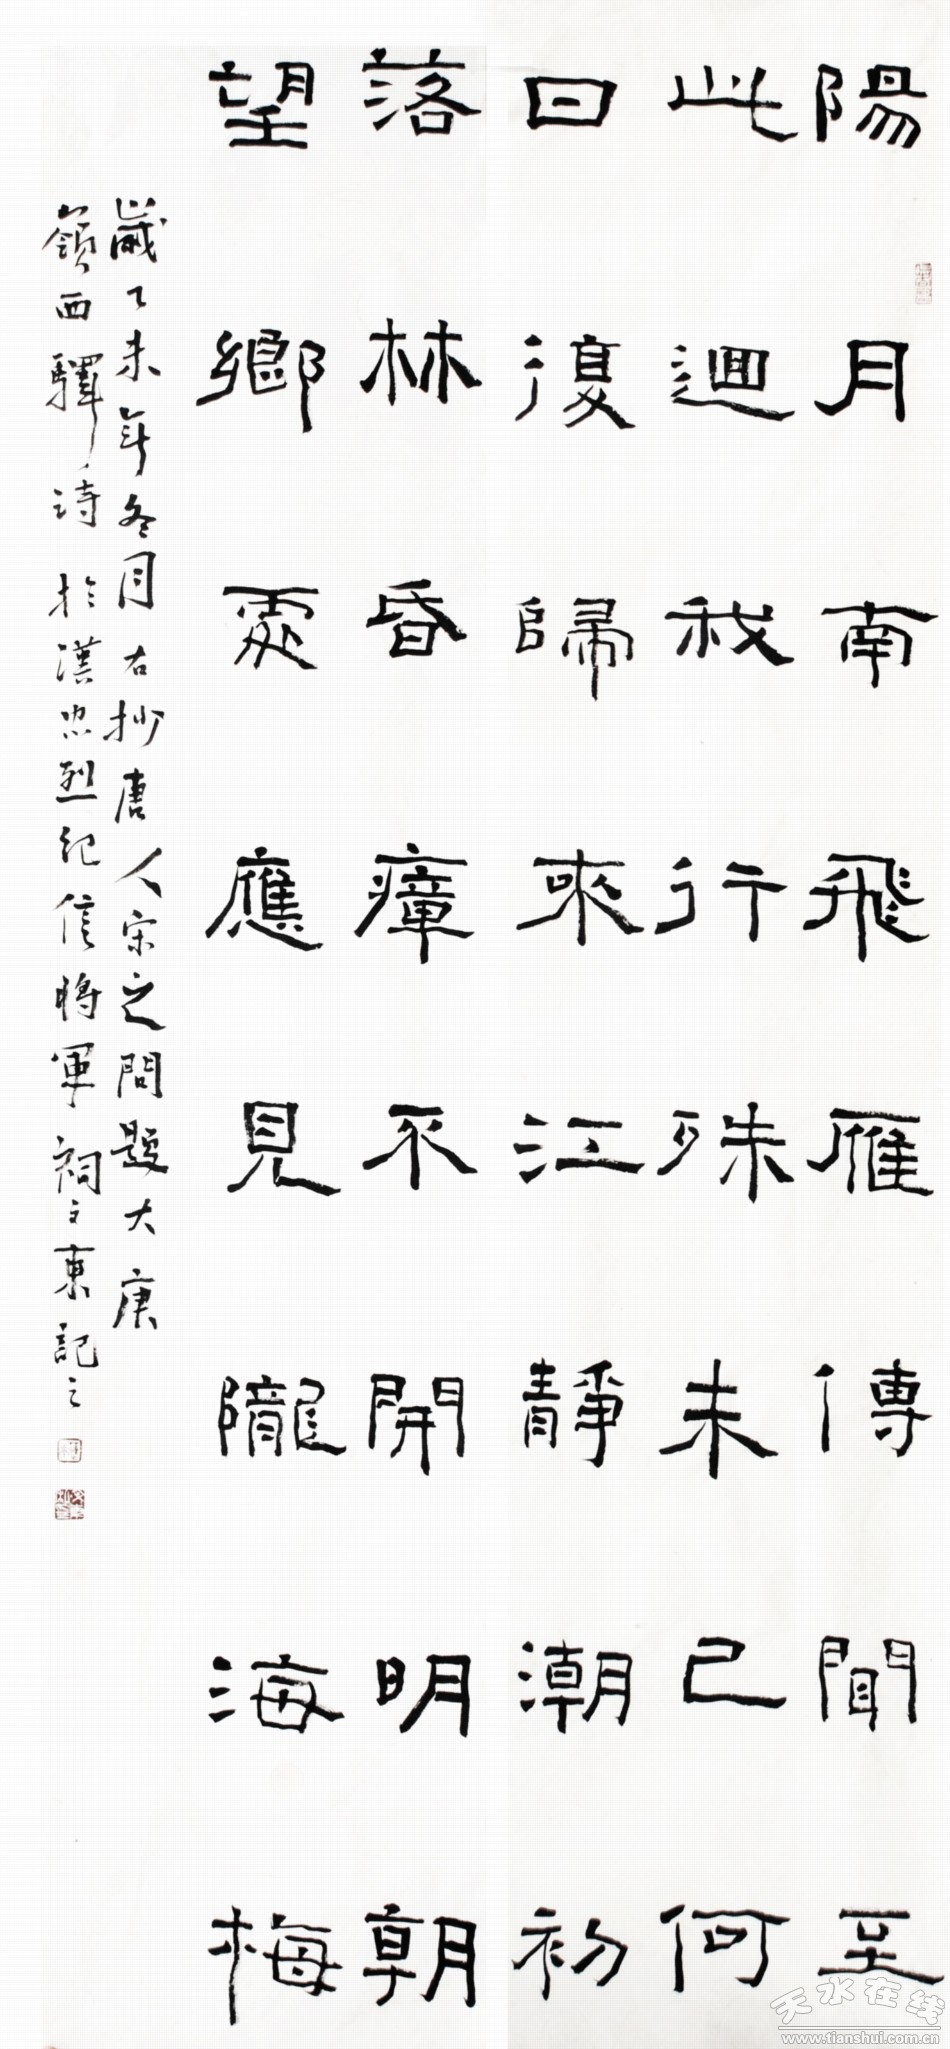 陽月南飛雁傳聞至
此迴我行殊未已何
日復歸來江靜潮初
落林昏瘴不開明朝
望鄉處應見隴海梅
歲乙未年冬月右抄唐人宋之問題大庚
嶺西驛詩於漢忠烈紀信將軍祠文東記之
天水在线
www.tianshui.com.cn